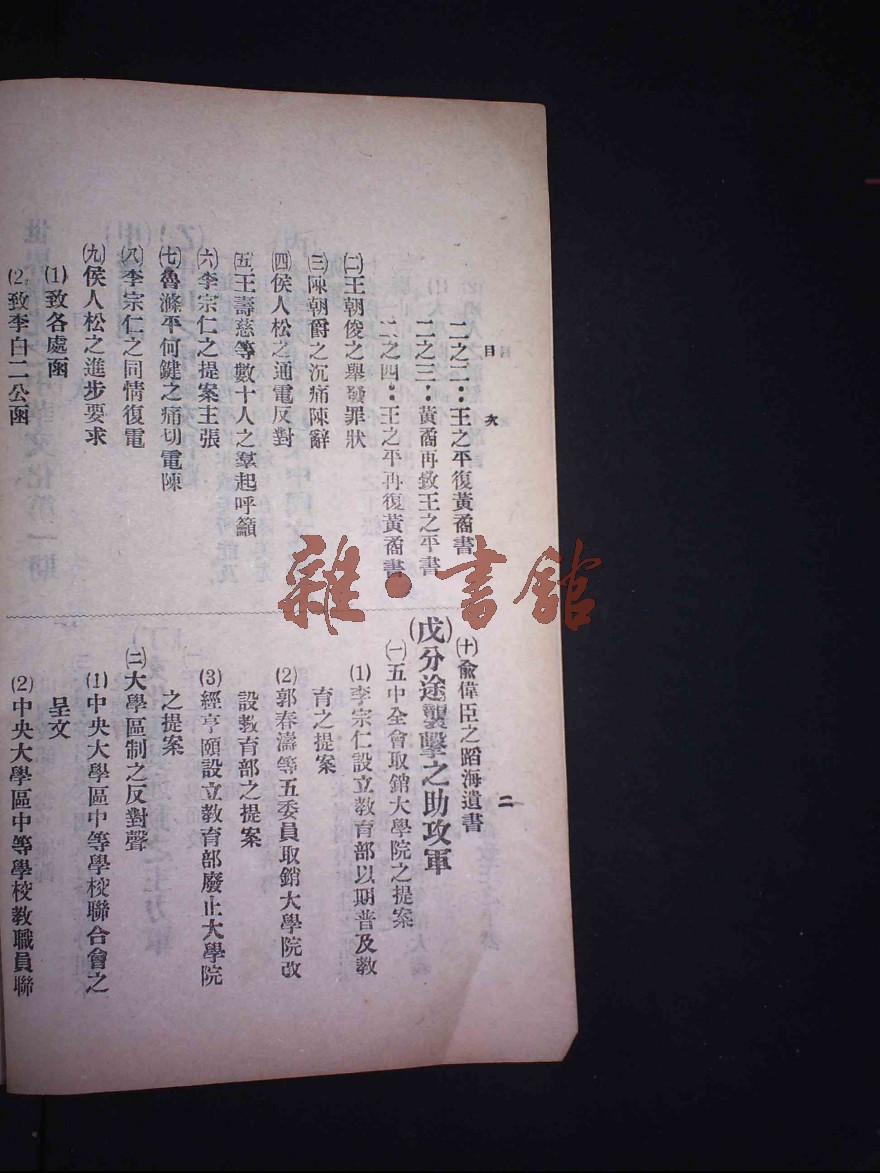 目次
二
二之二：王之平復黃裔書
二之三：黃裔再致王之平書
二之四：王之平再復黃裔書
㈡王朝俊之舉發罪狀
㈢陳朝爵之沉痛陳辭
㈣侯人松之通電反對
㈤王壽慈等數十人之羣起呼籲
㈥李宗仁之提案主張
㈦魯滌平何鍵之痛切電陳
㈧李宗仁之同情復電
㈨侯人松之進步要求
⑴致各處函
⑵致李白二公函
㈩兪偉臣之蹈海遺書
(戊)分途襲擊之助攻軍
㈠五中全會取銷大學院之提案
⑴李宗仁設立敎育部以期普及敎
育之提案
⑵郭春濤等五委員取銷大學院改
設敎育部之提案
⑶經亨頤設立敎育部廢止大學院
之提案
㈡大學區制之反對聲
⑴中央大學區中等學校聯合會之
呈文
⑵中央大學區中等學校敎職員聯
雜·書館